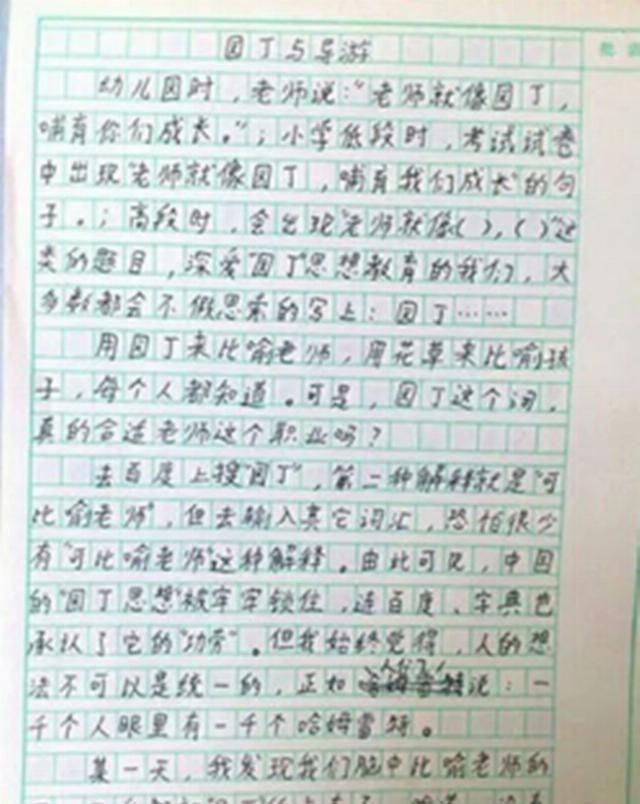 园丁与导游
幼儿园时，老师说："老师就像园丁，
哺育你们成长。"；小学低段时，考试试卷
中出现"老师就像园丁，哺育我们成长"的句
子。；高段时，会出现"老师就像( )，( )"这
类的题目，深爱"园丁"思想教育的我们，大
多数都会不假思索的写上：园丁……
用园丁来比喻老师，用花草来比喻孩
子，每个人都知道。可是，园丁这个词，
真的合适老师这个职业吗？
去百度上搜"园丁"，第二种解释就是"可
比喻老师"，但去输入其它词汇，恐怕很少
有"可比喻老师"这种解释。由此可见，中国
的"园丁思想"被牢牢锁住，连百度、字典也
承认了它的"功劳"。但我始终觉得，人的想
法不可以是统一的，正如人们说：一
千个人眼里有一千个哈姆雷特。
某一天，我发现我们脑中比喻老师的